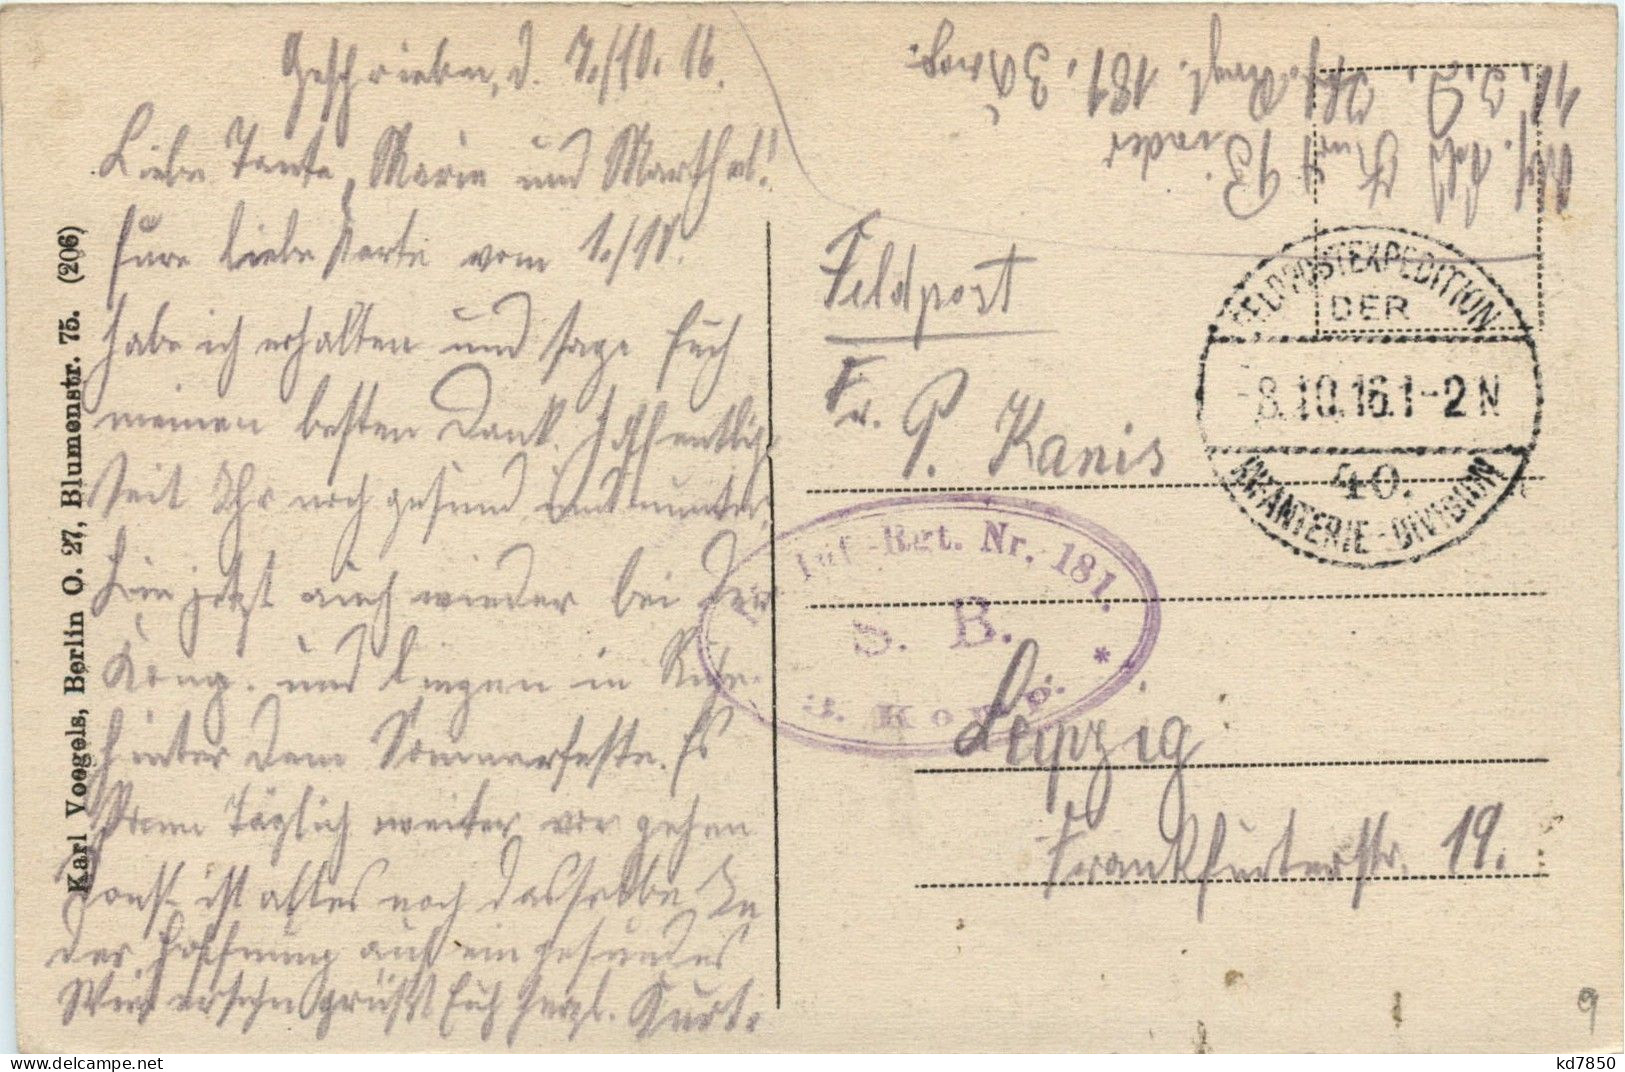 Geschrieben, d. 7./10. 16.
Liebe Tante, Marie und Martha!
Eure liebe Karte vom 1./10.
habe ich erhalten und sage Euch
meinen besten Dank. Hoffentlich
seit Ihr noch gesund und munter,
bin jetzt auch wieder bei der
Komp. und liegen in Ruhe
hinter dem Sommerfeste. Es
kann täglich weiter vor gehen
sonst ist alles noch dasselbe. In
der Hoffnung auf ein gesundes
Wiedersehn grüßt Euch herzl. Kurt.
Karl Voegels, Berlin O. 27, Blumenstr. 75. (206)
Kurt Binder
Inf. Regt. 181, 3 Komp.
Feldpost
Fr. P. Kanis
Leipzig
Frankfurterstr. 19.
FELDPOSTEXPEDITION
DER
-8.10.16.1-2N
40.
INFANTERIE-DIVISION
Inf.-Rgt. Nr. 181.
S. B.
3. Komp. *
9
kd7850